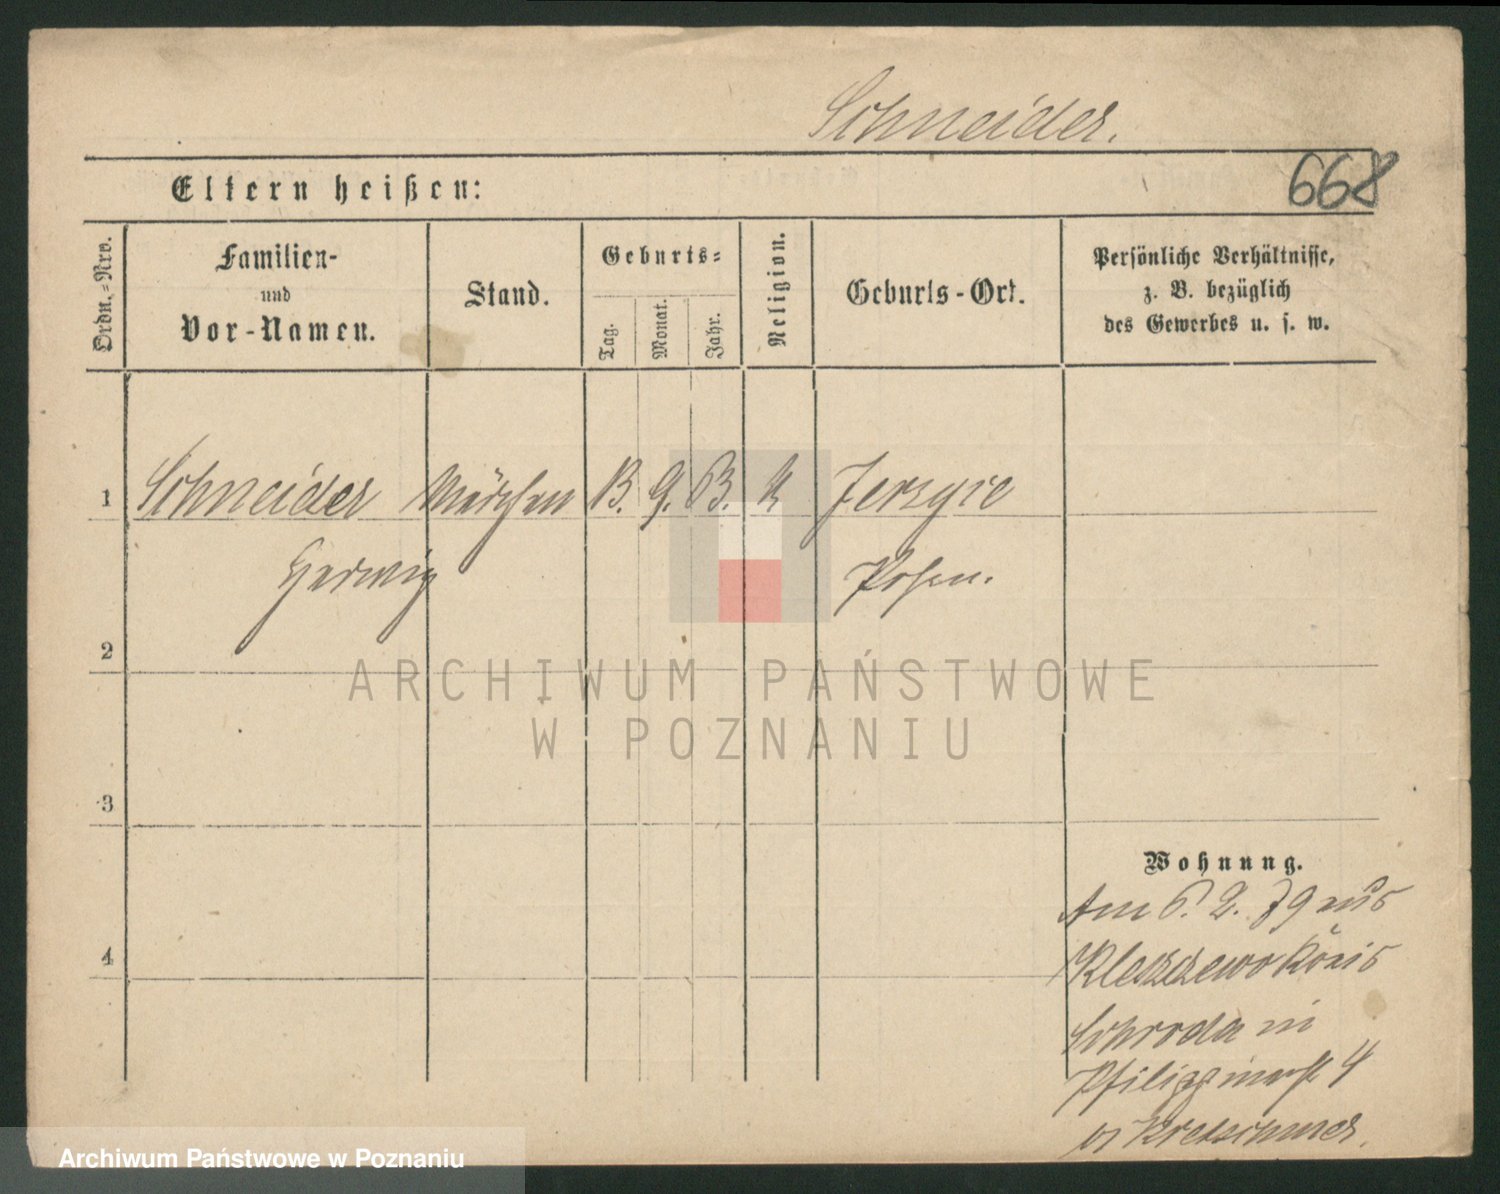 Schneider.
668
Eltern heißen:
Ordn.=Nro.
Familien-
und
Vor-Namen.
Stand.
Geburts=
Tag.
Monat.
Jahr.
Religion.
Geburts-Ort.
Persönliche Verhältnisse,
z. B. bezüglich
des Gewerbes u. s. w.
1 Schneider Mädchen K Jerzyce
Hedwig Posen.
2
3
4
Wohnung.
Am 6. 2. 79 aus
Kleszczewo Kreis
Schroda in
4
Kretschmer.
ARCHIWUM PAŃSTWOWE
W POZNANIU
Archiwum Państwowe w Poznaniu